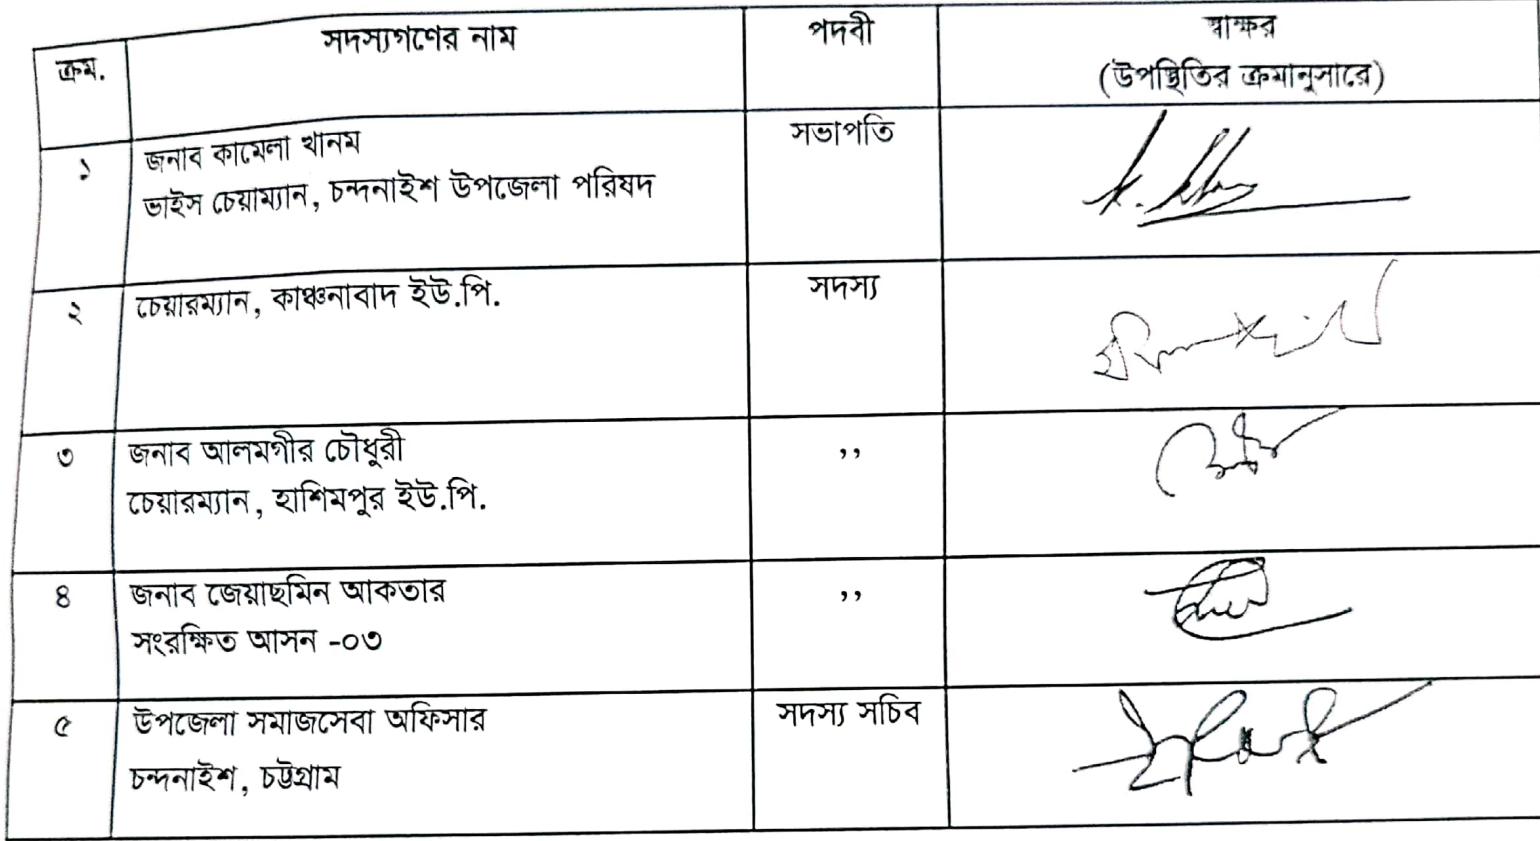 ক্রম.
সদস্যগণের নাম
পদবী
স্বাক্ষর
(উপস্থিতির ক্রমানুসারে)
১
জনাব কামেলা খানম
ভাইস চেয়াম্যান, চন্দনাইশ উপজেলা পরিষদ
সভাপতি
২
চেয়ারম্যান, কাঞ্চনাবাদ ইউ.পি.
সদস্য
৩
জনাব আলমগীর চৌধুরী
চেয়ারম্যান, হাশিমপুর ইউ.পি.
,,
৪
জনাব জেয়াছমিন আকতার
সংরক্ষিত আসন -০৩
,,
৫
উপজেলা সমাজসেবা অফিসার
চন্দনাইশ, চট্টগ্রাম
সদস্য সচিব